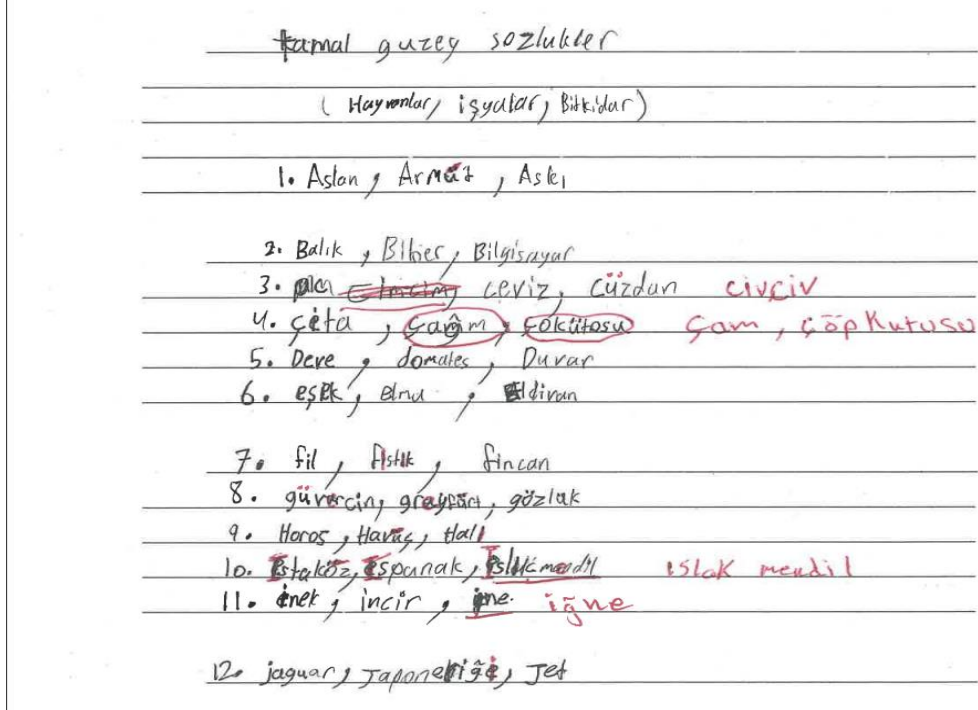 tamal guzey sozlukler
( Hayvanlar, işyalar, Bitkidar)
1. Aslan, Armut, Askı
2. Balık, Biber, Bilgisayar
3. ceviz, cüzdan civciv
4. çita, çağm, çokütosu çam, çöp Kutusu
5. Deve, domates, Duvar
6. eşek, elma, eldivan
7. fil, fıstık, fincan
8. güvercin, greyfurt, gözlak
9. Horos, Havuç, Halı
10. Istakoz, Ispanak, Islıkmendil ıslak mendil
11. inek, incir, ine. iğne
12. jaguar, Japoneriği, Jet